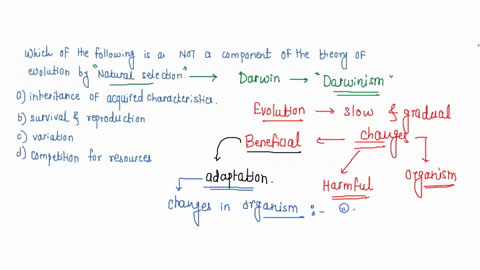 Which of the following is a NOT a component of the theory of
evolution by "Natural selection" → Darwin → "Darwinism"
a) inheritance of acquired characteristics.
b) survival & reproduction
c) variation
d) competition for resources
Evolution → slow & gradual
Beneficial ← changes
adaptation.
Harmful
Organism
changes in organism :-